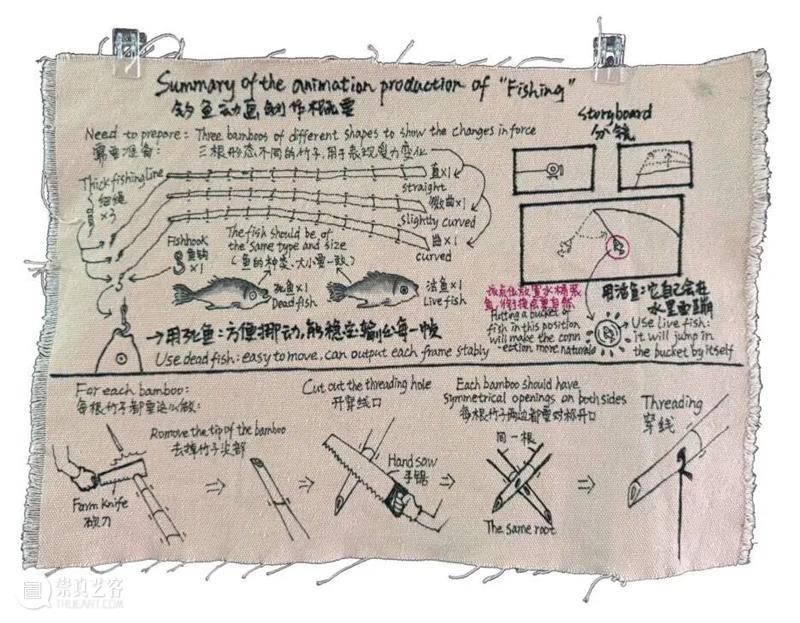 Summary of the animation production of "Fishing"
钓鱼动画制作概要
Need to prepare: Three bamboos of different shapes to show the changes in force
需要准备: 三根形态不同的竹子,用于表现受力变化
Thick fishing line
细绳
×3
直×1
straight
微曲×1
slightly curved
曲×1
curved
Fishhook
鱼钩
×1
The fish should be of
the same type and size
(鱼的种类、大小要一致)
死鱼×1
Dead fish
活鱼×1
Live fish
→用死鱼:方便挪动,能稳定输出每一帧
Use dead fish: easy to move, can output each frame stably
Storyboard
分镜
Putting a bucket of
fish in this position
will make the conn
-ection more natural
用活鱼:它自己会在
水里面蹦
Use live fish:
it will jump in
the bucket by itself
For each bamboo:
每根竹子都要这么做:
Romove the tip of the bamboo
去掉竹子尖部
Farm knife
砍刀
Cut out the threading hole
开穿线口
Hand saw
手锯
Each bamboo should have
symmetrical openings on both sides
每根竹子两边都要对称开口
同一根
The same root
Threading
穿线
崇真艺客
TRUEART.COM